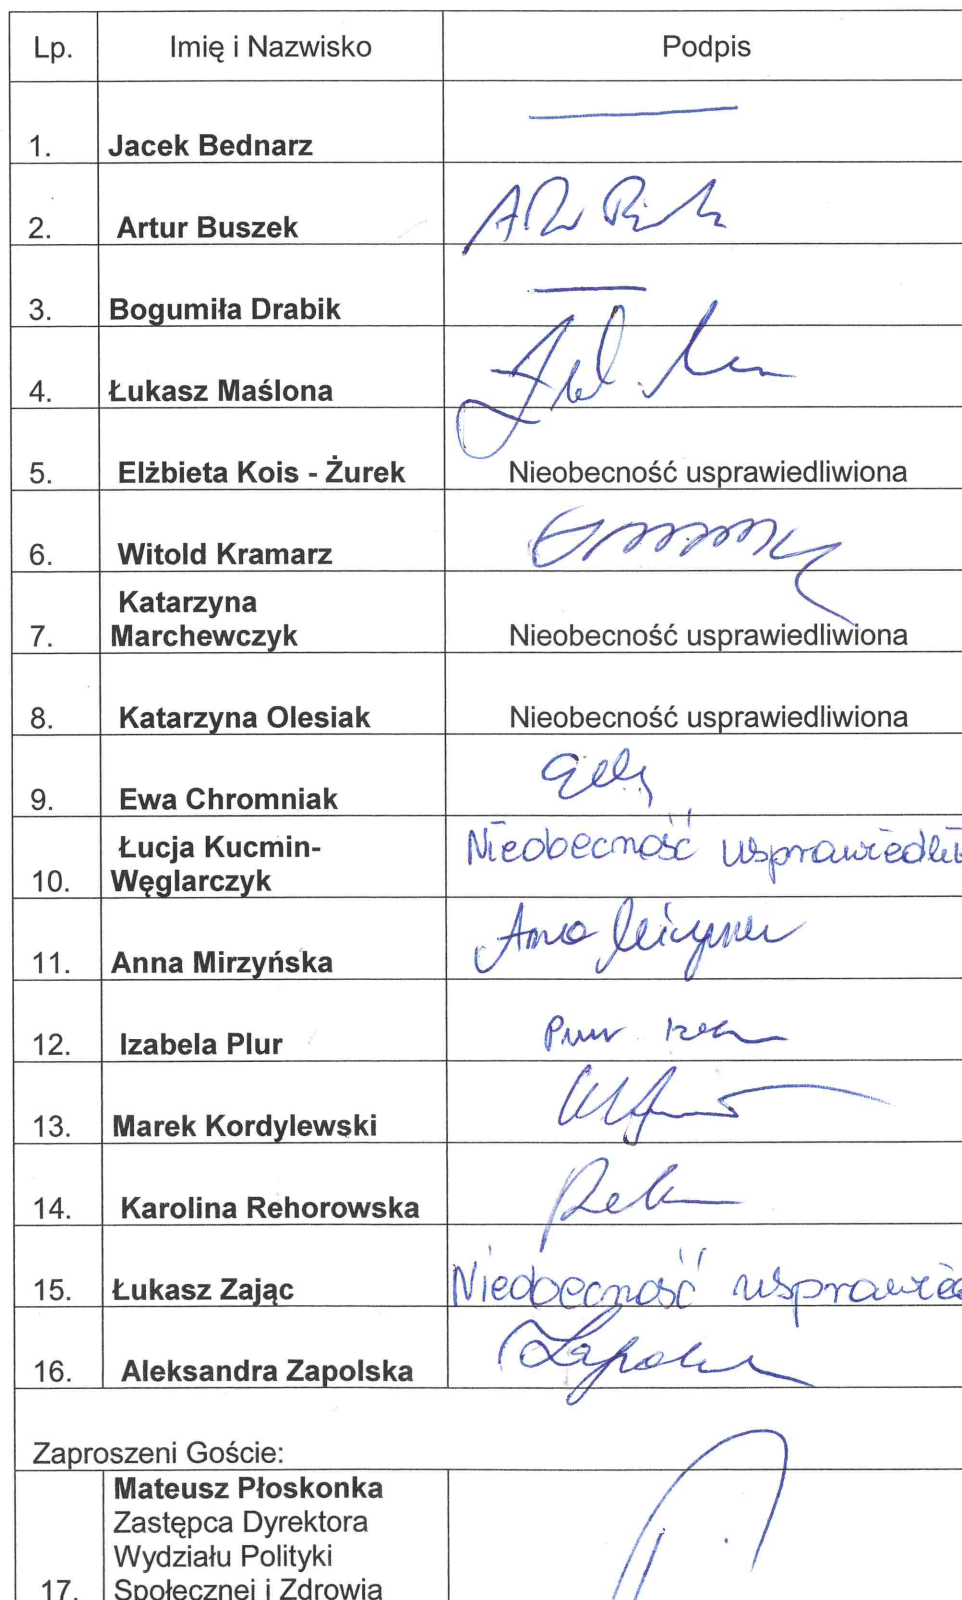 Lp. Imię i Nazwisko Podpis
1. Jacek Bednarz
2. Artur Buszek
3. Bogumiła Drabik
4. Łukasz Maślona
5. Elżbieta Kois - Żurek Nieobecność usprawiedliwiona
6. Witold Kramarz
Katarzyna
7. Marchewczyk Nieobecność usprawiedliwiona
8. Katarzyna Olesiak Nieobecność usprawiedliwiona
9. Ewa Chromniak
Łucja Kucmin- Nieobecność usprawiedli
10. Węglarczyk
11. Anna Mirzyńska
12. Izabela Plur
13. Marek Kordylewski
14. Karolina Rehorowska
15. Łukasz Zając Nieobecność usprawied
16. Aleksandra Zapolska
Zaproszeni Goście:
Mateusz Płoskonka
Zastępca Dyrektora
Wydziału Polityki
17. Społecznej i Zdrowia